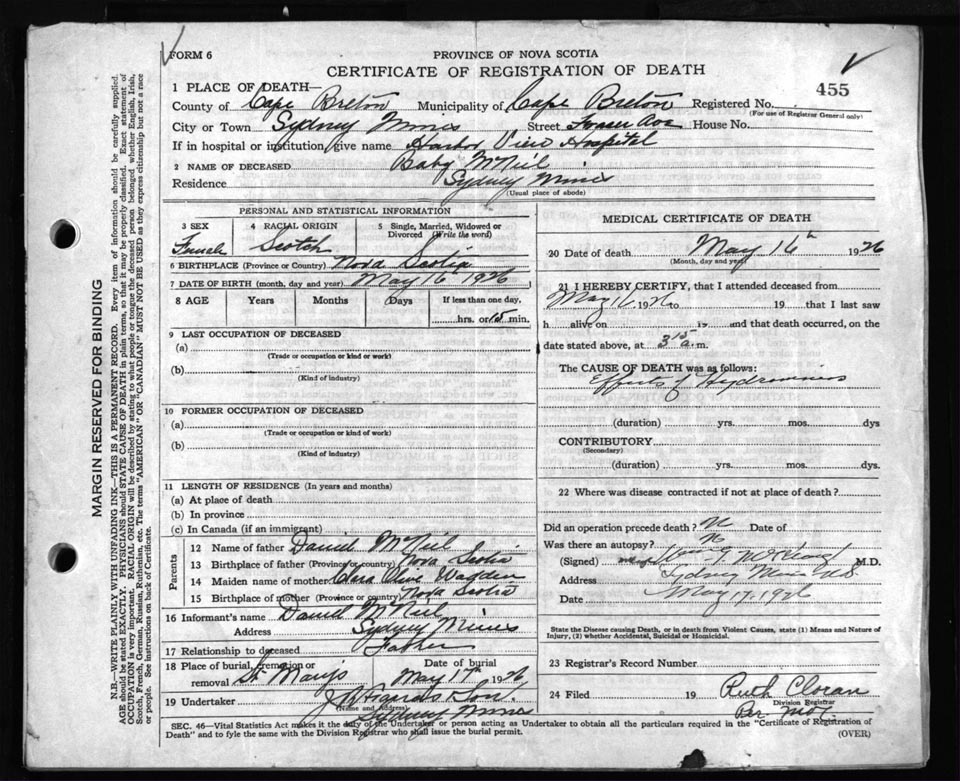 FORM 6
PROVINCE OF NOVA SCOTIA
CERTIFICATE OF REGISTRATION OF DEATH
455
1 PLACE OF DEATH—
County of Cape Breton Municipality of Cape Breton Registered No.
(For use of Registrar General only)
City or Town Sydney Mines Street Fraser Ave House No.
If in hospital or institution, give name Harbor View Hospital
2 NAME OF DECEASED Baby McNeil
Residence Sydney Mines
(Usual place of abode)
PERSONAL AND STATISTICAL INFORMATION
3 SEX 4 RACIAL ORIGIN 5 Single, Married, Widowed or Divorced (Write the word)
Female Scotch
6 BIRTHPLACE (Province or Country) Nova Scotia
7 DATE OF BIRTH (month, day and year) May 16 1926
8 AGE Years Months Days If less than one day,
hrs. or 15 min.
9 LAST OCCUPATION OF DECEASED
(a)
(Trade or occupation or kind or work)
(b)
(Kind of industry)
10 FORMER OCCUPATION OF DECEASED
(a)
(Trade or occupation or kind of work)
(b)
(Kind of industry)
11 LENGTH OF RESIDENCE (In years and months)
(a) At place of death
(b) In province
(c) In Canada (if an immigrant)
Parents
12 Name of father Daniel McNeil
13 Birthplace of father (Province or country) Nova Scotia
14 Maiden name of mother Clara Olive Wadden
15 Birthplace of mother (Province or country) Nova Scotia
16 Informant's name Daniel McNeil
Address Sydney Mines
17 Relationship to deceased Father
18 Place of burial, cremation or removal St Marys Date of burial May 17th 1926
19 Undertaker & Son
(Name and Address)
Sydney Mines
MEDICAL CERTIFICATE OF DEATH
20 Date of death May 16th 1926
(Month, day and year)
21 I HEREBY CERTIFY, that I attended deceased from
May 16 1926 to 19 that I last saw
h alive on 19 and that death occurred, on the
date stated above, at 3 15 a.m.
The CAUSE OF DEATH was as follows:
Effects of
(duration) yrs. mos. dys
CONTRIBUTORY
(Secondary)
(duration) yrs. mos. dys.
22 Where was disease contracted if not at place of death?
Did an operation precede death? N Date of
Was there an autopsy? No
(Signed) M.D.
Address Sydney Mines N.S.
Date May 17, 1926
State the Disease causing Death, or in death from Violent Causes, state (1) Means and Nature of
Injury, (2) whether Accidental, Suicidal or Homicidal.
23 Registrar's Record Number
24 Filed 19 Ruth Cloran
Division Registrar
Per
SEC. 46—Vital Statistics Act makes it the duty of the Undertaker or person acting as Undertaker to obtain all the particulars required in the "Certificate of Registration of
Death" and to fyle the same with the Division Registrar who shall issue the burial permit. (OVER)
MARGIN RESERVED FOR BINDING
N.B.—WRITE PLAINLY WITH UNFADING INK—THIS IS A PERMANENT RECORD. Every item of information should be carefully supplied.
AGE should be stated EXACTLY. PHYSICIANS should STATE CAUSE OF DEATH in plain terms, so that it may be properly classified. Exact statement of
OCCUPATION is very important. RACIAL ORIGIN will be described by stating to what people or tongue the deceased person belonged, whether English, Irish,
Scotch, French, German, Russian, Ruthenian, etc. The terms "AMERICAN" OR "CANADIAN" MUST NOT BE USED as they express citizenship but not a race
or people. See instructions on back of Certificate.